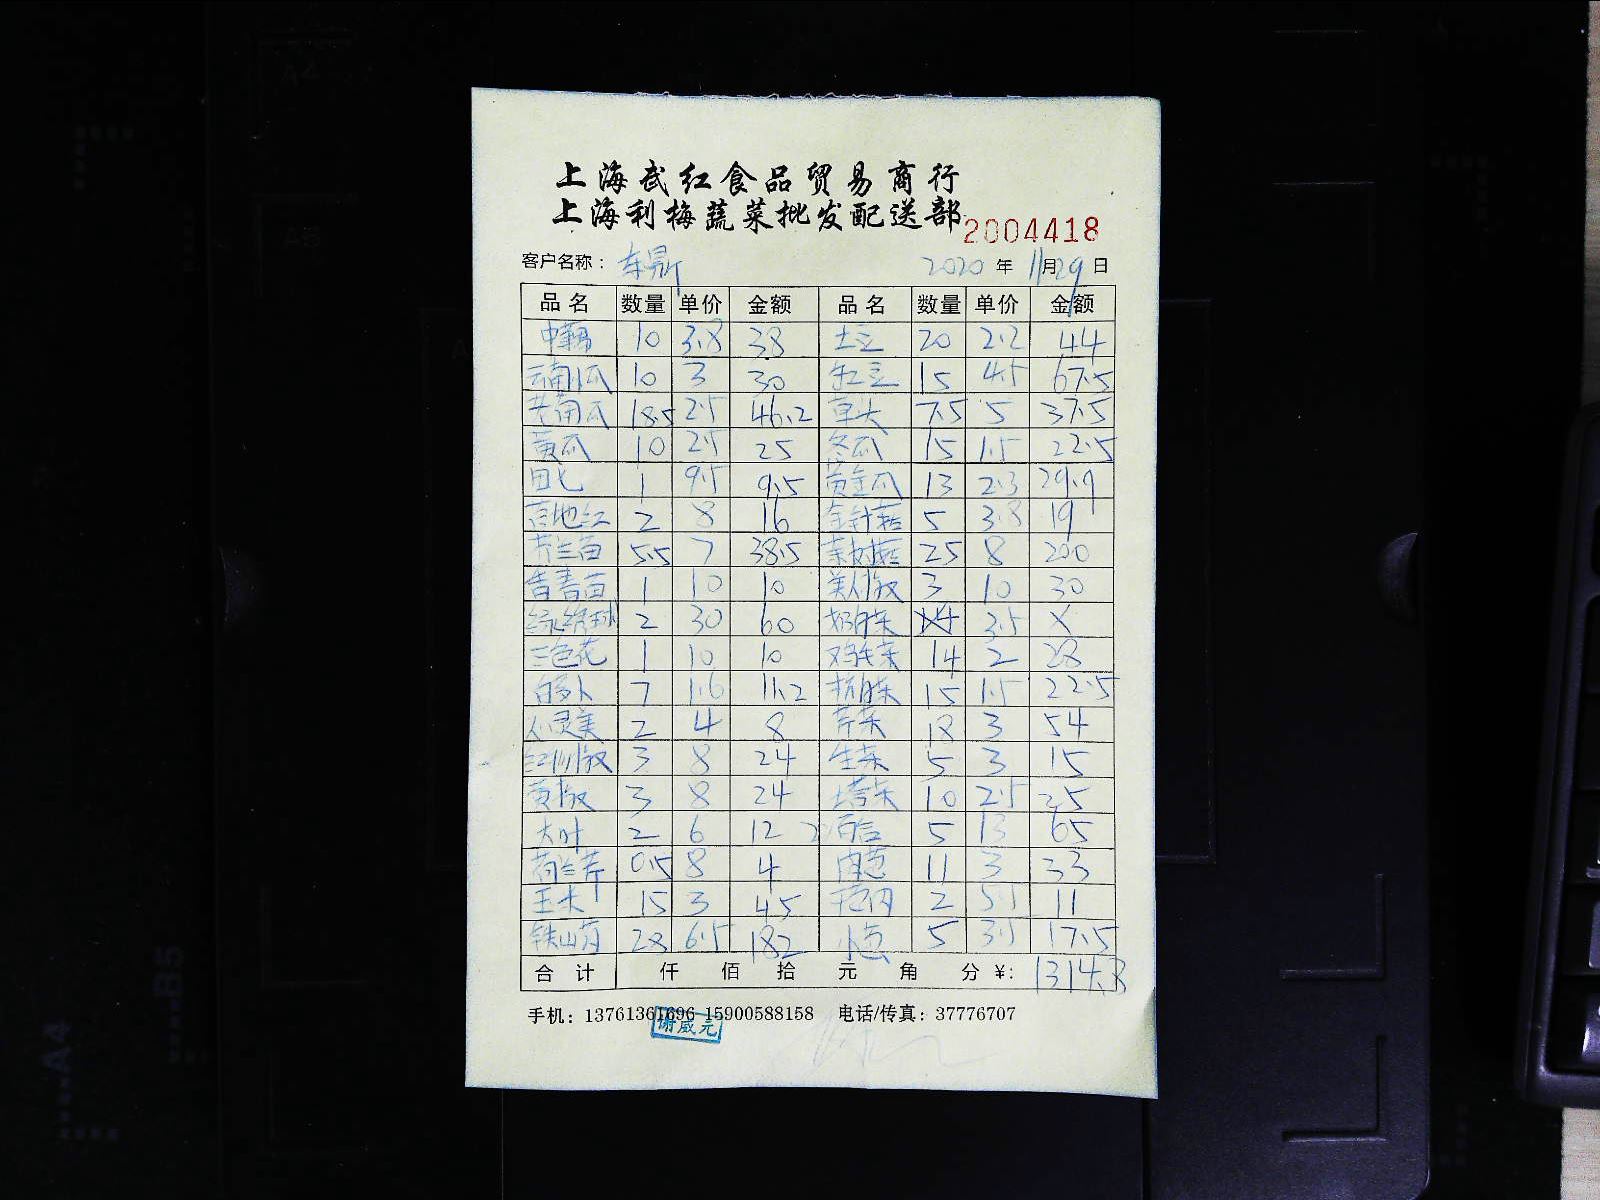 上海武红食品贸易商行
上海利梅蔬菜批发配送部 2004418
客户名称: 2020 年 11 月 29 日
品名 数量 单价 金额 品名 数量 单价 金额
10 3.8 38 土豆 20 2.2 44
云南小瓜 10 3 30 红豆 15 4.5 67.5
老南瓜 18.5 2.5 46.2 草头 7.5 5 37.5
黄瓜 10 2.5 25 冬瓜 15 1.5 22.5
田七 1 9.5 9.5 黄金瓜 13 2.3 29.9
2 8 16 金针菇 5 3.8 19
芥兰苗 5.5 7 38.5 25 8 200
1 10 10 美人椒 3 10 30
2 30 60 奶白菜 3.5 X
三色花 1 10 10 鸡毛菜 14 2 28
白萝卜 7 1.6 11.2 杭白菜 15 1.5 22.5
2 4 8 芹菜 18 3 54
3 8 24 生菜 5 3 15
黄椒 3 8 24 塔菜 10 2.5 25
大叶 2 6 12 百合 5 13 65
荷兰芹 0.5 8 4 11 3 33
玉米 15 3 45 2 5.5 11
铁山药 28 6.5 182 小葱 5 3.5 17.5
合计 仟 佰 拾 元 角 分 ¥: 1314.8
手机: 13761361696 15900588158 电话/传真: 37776707
谢威元